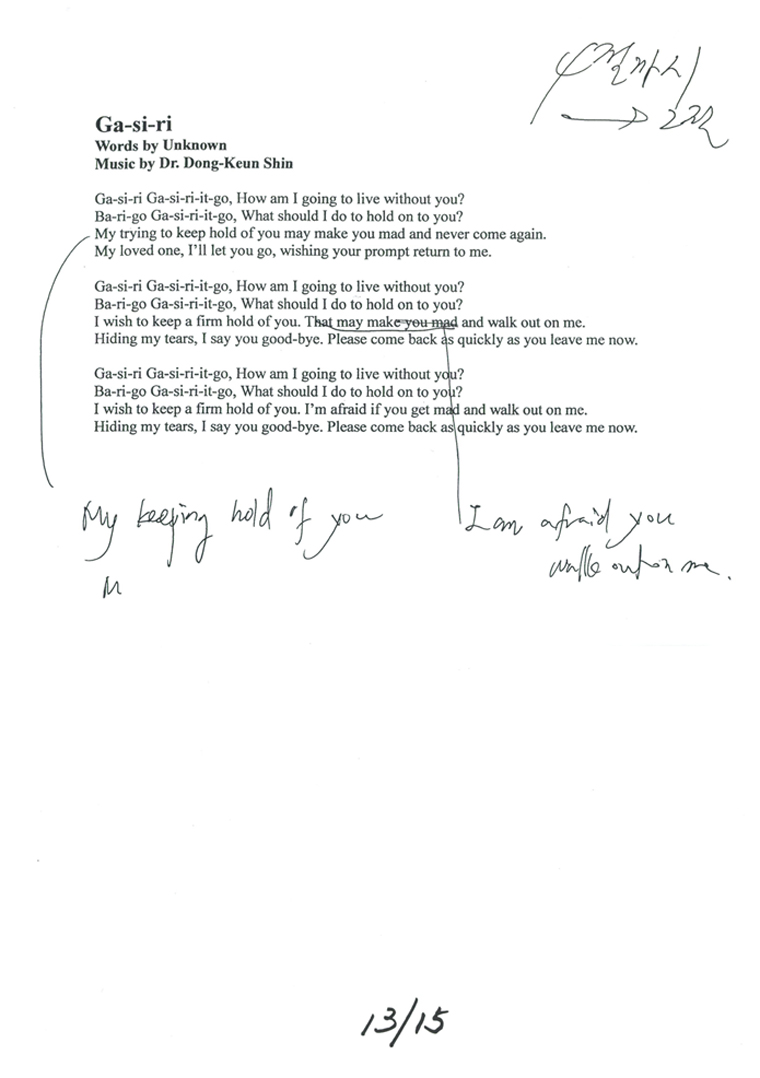 4절 가사
→ 2절
Ga-si-ri
Words by Unknown
Music by Dr. Dong-Keun Shin
Ga-si-ri Ga-si-ri-it-go, How am I going to live without you?
Ba-ri-go Ga-si-ri-it-go, What should I do to hold on to you?
My trying to keep hold of you may make you mad and never come again.
My loved one, I’ll let you go, wishing your prompt return to me.
Ga-si-ri Ga-si-ri-it-go, How am I going to live without you?
Ba-ri-go Ga-si-ri-it-go, What should I do to hold on to you?
I wish to keep a firm hold of you. That may make you mad and walk out on me.
Hiding my tears, I say you good-bye. Please come back as quickly as you leave me now.
Ga-si-ri Ga-si-ri-it-go, How am I going to live without you?
Ba-ri-go Ga-si-ri-it-go, What should I do to hold on to you?
I wish to keep a firm hold of you. I’m afraid if you get mad and walk out on me.
Hiding my tears, I say you good-bye. Please come back as quickly as you leave me now.
My keeping hold of you
M
I am afraid you
walk out on me.
13/15